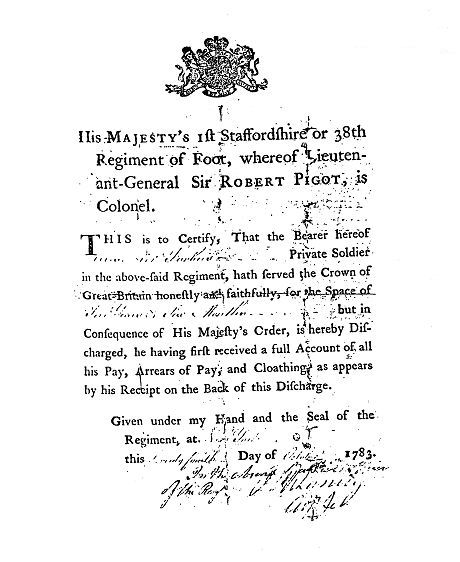 His MAJESTY's 1ſt Staffordſhire or 38th
Regiment of Foot, whereof Lieuten-
ant-General Sir ROBERT PIGOT, is
Colonel.
THIS is to Certify, That the Bearer hereof
Private Soldier
in the above-ſaid Regiment, hath ſerved the Crown of
Great-Britain honeſtly and faithfully, for the Space of
but in
Conſequence of His Majeſty's Order, is hereby Diſ-
charged, he having firſt received a full Account of all
his Pay, Arrears of Pay, and Cloathing, as appears
by his Receipt on the Back of this Diſcharge.
Given under my Hand and the Seal of the
Regiment, at
this twenty fourth Day of October 1783.
For the
of the Regt